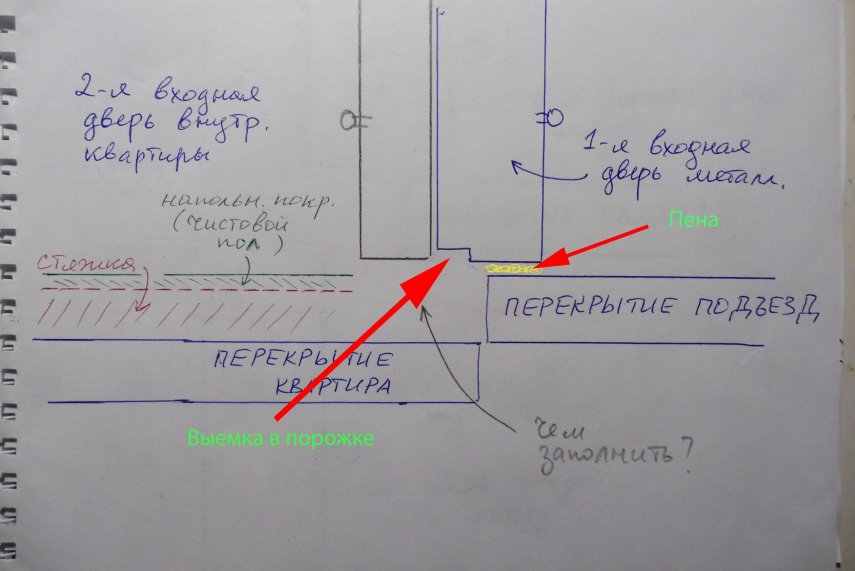 2-я входная
дверь внутр.
квартиры
1-я входная
дверь металл.
Пена
напольн. покр.
(чистовой
пол)
стяжка
ПЕРЕКРЫТИЕ ПОДЪЕЗД
ПЕРЕКРЫТИЕ
КВАРТИРА
Выемка в порожке
Чем
заполнить?